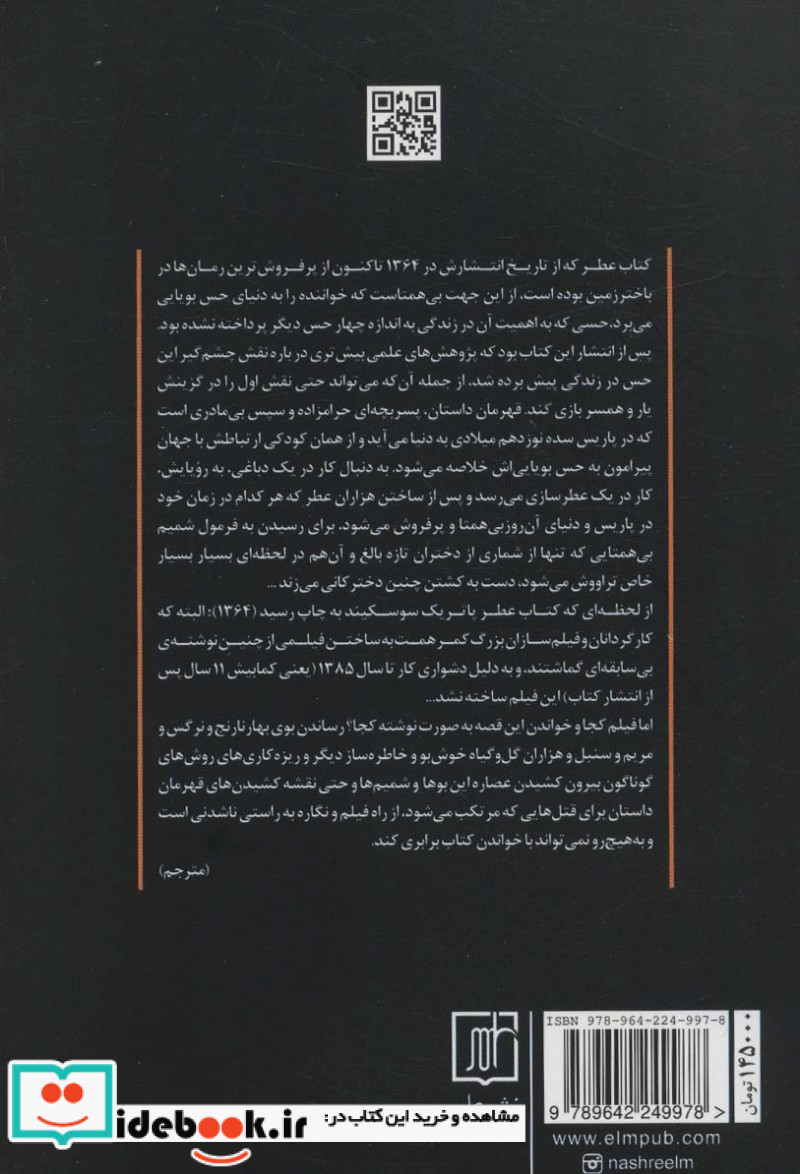 کتاب عطر که از تاریخ انتشارش در ۱۳۶۴ تاکنون از پرفروش‌ترین رمان‌ها در
باخترزمین بوده است. از این جهت بی‌همتاست که خواننده را به دنیای حس بویایی
می‌برد، حسی که به اهمیت آن در زندگی به اندازه چهار حس دیگر پرداخته نشده بود.
پس از انتشار این کتاب بود که پژوهش‌های علمی بیش‌تری درباره نقش چشم‌گیر این
حس در زندگی پیش برده شد، از جمله آن‌که می‌تواند حتی نقش اول را در گزینش
یار و همسر بازی کند. قهرمان داستان، پسربچه‌ای حرامزاده و سپس بی‌مادری است
که در پاریس سده نوزدهم میلادی به دنیا می‌آید و از همان کودکی ارتباطش با جهان
پیرامون به حس بویایی‌اش خلاصه می‌شود. به دنبال کار در یک دباغی، به رؤیایش،
کار در یک عطرسازی می‌رسد و پس از ساختن هزاران عطر که هر کدام در زمان خود
در پاریس و دنیای آن‌روز بی‌همتا و پرفروش می‌شود، برای رسیدن به فرمول شمیم
بی‌همتایی که تنها از شماری از دختران تازه بالغ و آن‌هم در لحظه‌ای بسیار بسیار
خاص تراووش می‌شود، دست به کشتن چنین دخترکانی می‌زند ...
از لحظه‌ای که کتاب عطر پاتریک سوسکیند به چاپ رسید (۱۳۶۴)؛ البته که
کارگردانان و فیلم‌سازان بزرگ کمر همت به ساختن فیلمی از چنین نوشته‌ی
بی‌سابقه‌ای گماشتند، و به دلیل دشواری کار تا سال ۱۳۸۵ (یعنی کمابیش ۱۱ سال پس
از انتشار کتاب) این فیلم ساخته نشد...
اما فیلم کجا و خواندن این قصه به صورت نوشته کجا؟ رساندن بوی بهارنارنج و نرگس و
مریم و سنبل و هزاران گل‌وگیاه خوش‌بو و خاطره‌ساز دیگر و ریزه‌کاری‌های روش‌های
گوناگون بیرون کشیدن عصاره این بوها و شمیم‌ها و حتی نقشه کشیدن‌های قهرمان
داستان برای قتل‌هایی که مرتکب می‌شود، از راه فیلم و نگاره به راستی ناشدنی است
و به‌هیچ‌رو نمی‌تواند با خواندن کتاب برابری کند.
(مترجم)
ISBN 978-964-224-997-8
۱۴۵۰۰۰ تومان
9 789642 249978 >
www.elmpub.com
nashreelm
مشاهده و خرید این کتاب در:
idebook.ir